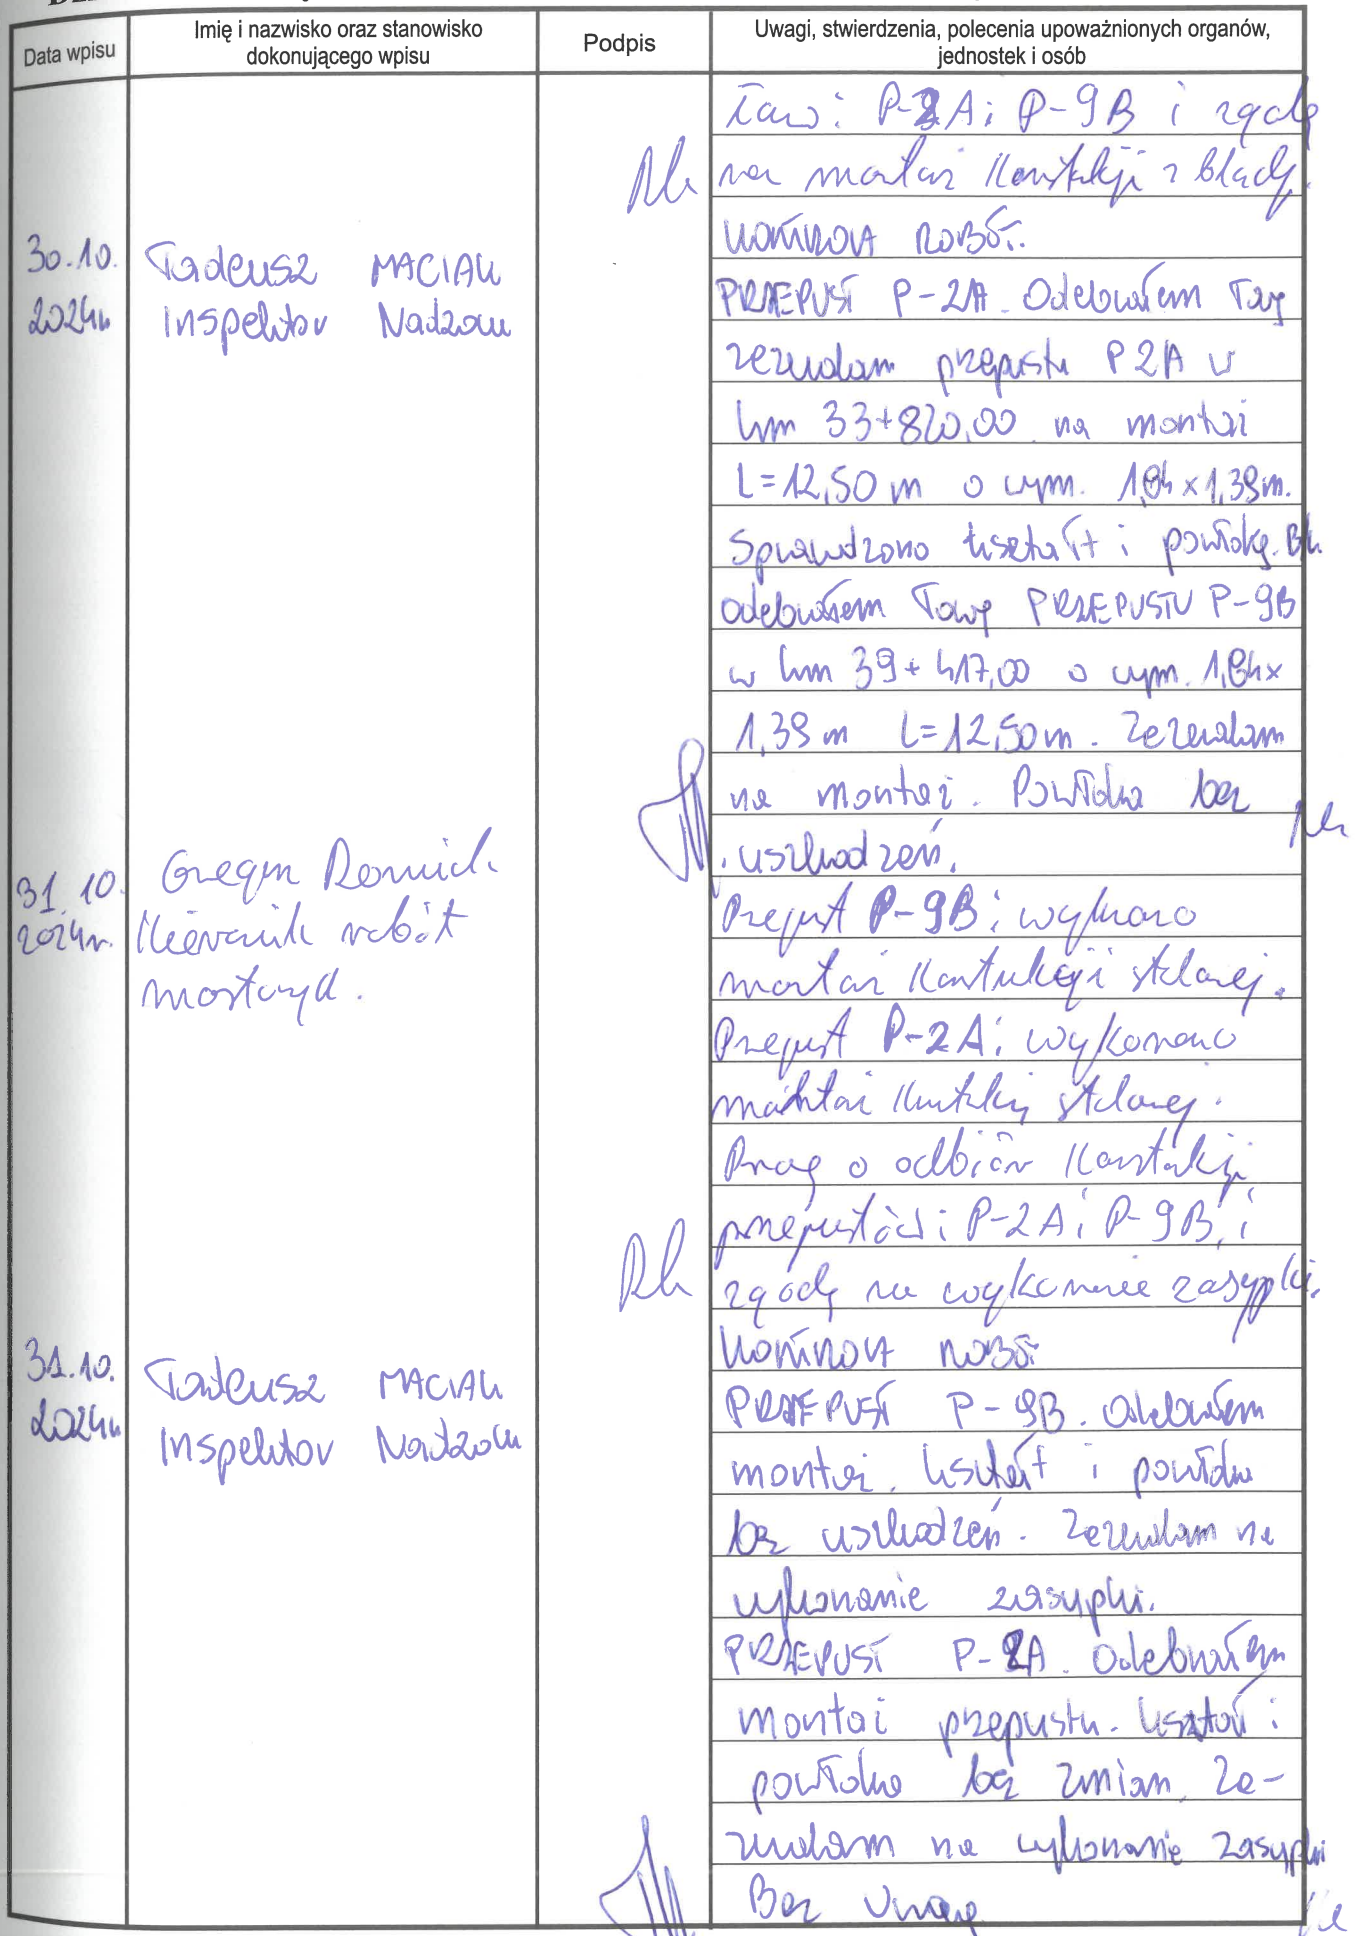 Data wpisu
Imię i nazwisko oraz stanowisko
dokonującego wpisu
Podpis
Uwagi, stwierdzenia, polecenia upoważnionych organów,
jednostek i osób
Ław: P-2A i P-9B i zgodę
na montaż konstrukcji z blachy.
30.10.
2024r
Tadeusz MACIAK
Inspektor Nadzoru
KONTROLA ROBÓT.
PRZEPUST P-2A. Odebrałem ławę
zezwalam przepustu P2A w
km 33+820,00 na montaż
L=12,50 m o wym. 1,84x1,39m.
Sprawdzono kształt i powłokę.
odebrałem ławę PRZEPUSTU P-9B
w km 39+417,00 o wym. 1,84x
1,39 m L=12,50m. Zezwalam
na montaż. Powłoka bez
uszkodzeń.
31.10.
2024r.
Kierownik robót
mostowych.
Przepust P-9B: wykonano
montaż konstrukcji stalowej.
Przepust P-2A: wykonano
montaż konstrukcji stalowej.
Proszę o odbiór konstrukcji
przepustów: P-2A i P-9B, i
zgodę na wykonanie zasypki.
31.10.
2024r
Tadeusz MACIAK
Inspektor Nadzoru
KONTROLA ROBÓT
PRZEPUST P-9B. Odebrałem
montaż. kształt i powłoka
bez uszkodzeń. Zezwalam na
wykonanie zasypki.
PRZEPUST P-2A. Odebrałem
montaż przepustu. Kształt i
powłoka bez zmian. Ze-
zwalam na wykonanie zasypki
Bez uwag